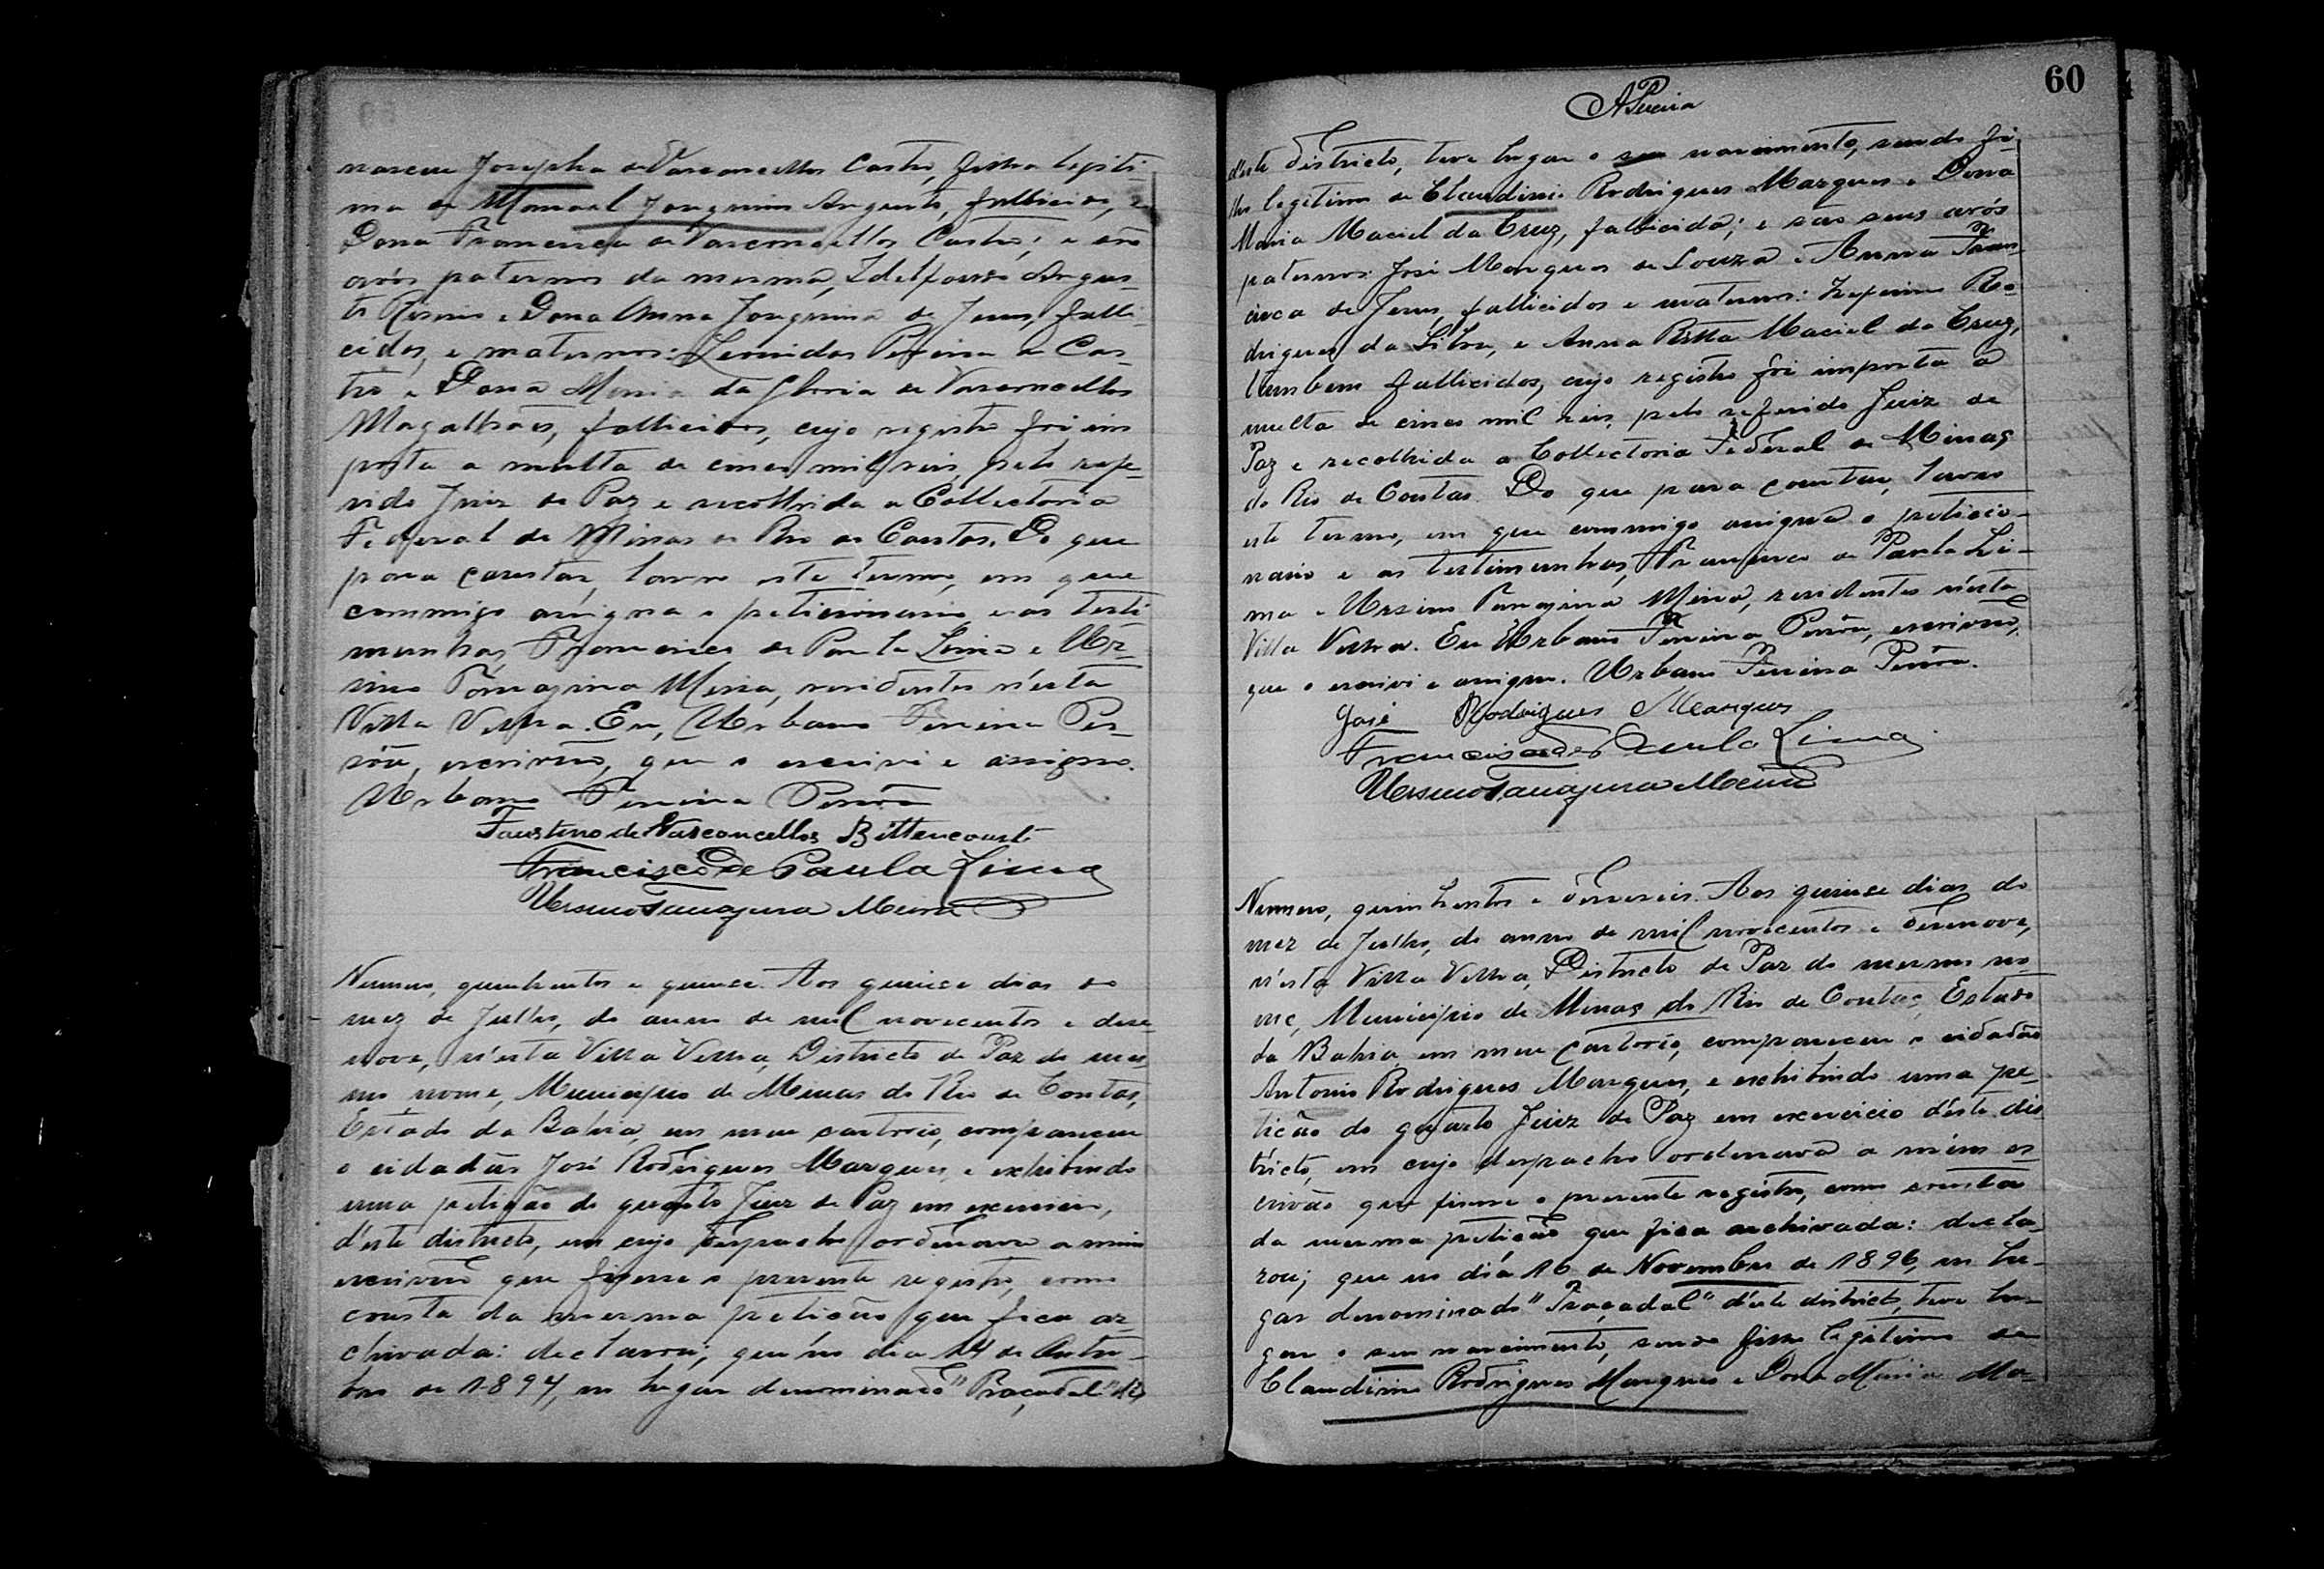 nasceu Josepha de Vasconcellos Castro, filha legiti-
ma de Manoel Joaquim Augusto, fallecido, e
Dona Francisca de Vasconcellos Castro; e são
avós paternos da mesma, Idelfonso Augus-
to e Dona Anna Joaquina de Jesus, falle-
cidos, e maternos: Leonidas Pereira de Cas-
tro e Dona Maria da Gloria de Vasconcellos
Magalhães, fallecidos, cujo registro foi im
posta a multa de cinco mil reis pelo refe-
rido Juiz de Paz e recolhida a Collectoria
Federal de Minas do Rio de Contas. Do que
para constar, lavro este termo, em que
commigo assigna o peticionario e as teste
munhas, Francisco de Paula Lima e Ur-
sino Tanajura Meira, residentes n'esta
Villa Velha. Eu, Urbano Pereira Pes-
sôa, escrivão, que o escrivi e assigno.
Urbano Pereira Pessôa
Faustino de Vasconcellos Bittencourt
Francisco de Paula Lima
Ursino Tanajura Meira
Numero, quinhentos e quinse. Aos quinse dias do
mez de Julho, do anno de mil novecentos e dese
nove, n'esta Villa Velha, Districto de Paz do mes
mo nome, Municipio de Minas do Rio de Contas,
Estado da Bahia, em meu cartorio, compareceu
o cidadão José Rodrigues Marques, e exhibindo
uma petição do quarto Juiz de Paz em exercicio,
d'este districto, em cujo despacho ordenava a mim
escrivão que fisesse o presente registro, como
consta da mesma petição que fica ar-
chivada: declarou; que no dia 14 de Outu-
bro de 1894, no lugar denominado "Praçadal" d
60
APereira
d'este districto, teve lugar o seu nascimento, sendo fi-
lho legitimo de Claudino Rodrigues Marques e Dona
Maria Maciel da Cruz, fallecida; e são seus avós
paternos: José Marques de Souza e Anna Fran-
cisca de Jesus, fallecidos e maternos: Zeferino Ro-
drigues da Silva, e Anna Ritta Maciel da Cruz,
tambem fallecidos, cujo registro foi imposta a
multa de cinco mil reis, pelo referido Juiz de
Paz e recolhida a Collectoria Federal de Minas
do Rio de Contas. Do que para constar, lavro
este termo, em que commigo assigna o peticio-
nario e as testemunhas, Francisco de Paula Li-
ma e Ursino Tanajura Meira, residentes n'esta
Villa Velha. Eu Urbano Pereira Pessôa, escrivão,
que o escrivi e assigno. Urbano Pereira Pessôa.
José Rodrigues Marques
Francisco de Paula Lima
Ursino Tanajura Meira
Numero, quinhentos e deseseis. Aos quinse dias do
mez de Julho, do anno de mil novecentos e desenove,
n'esta Villa Velha, Districto de Paz do mesmo no-
me, Municipio de Minas do Rio de Contas, Estado
da Bahia em meu cartorio, compareceu o cidadão
Antonio Rodrigues Marques, e exhibindo uma pe-
tição do quarto Juiz de Paz em exercicio d'este dis
tricto, em cujo despacho ordenava a mim es-
crivão que fisesse o presente registro, como consta
da mesma petição que fica archivada: decla-
rou; que no dia 16 de Novembro de 1896, no lu-
gar denominado "Praçadal" d'este districto, teve lu-
gar o seu nascimento, sendo filho legitimo de
Claudino Rodrigues Marques e Dona Maria Ma-